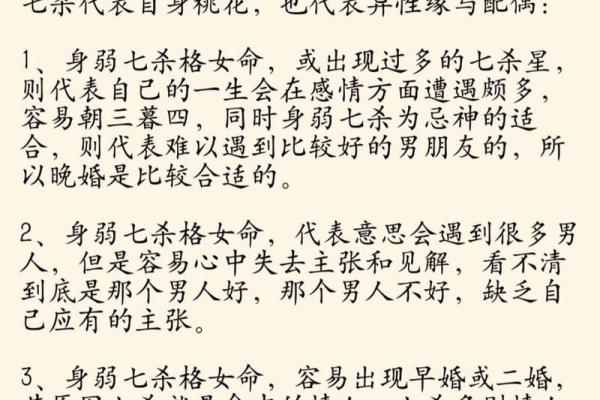 七杀代表自身桃花，也代表异性缘与配偶：
1、身弱七杀格女命，或出现过多的七杀星，
则代表自己的一生会在感情方面遭遇颇多，
容易朝三暮四，同时身弱七杀为忌神的适
合，则代表难以遇到比较好的男朋友的，所
以晚婚是比较合适的。
2、身弱七杀格女命，代表意思会遇到很多男
人，但是容易心中失去主张和见解，看不清
到底是那个男人好，那个男人不好，缺乏自
己应有的主张。
3、身弱七杀格女命，容易出现早婚或二婚，